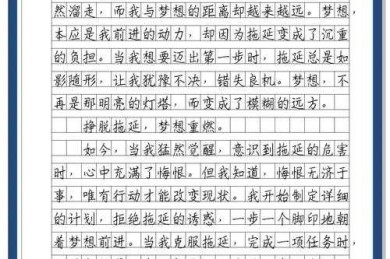 然溜走，而我与梦想的距离却越来越远。梦想，
本应是我前进的动力，却因为拖延变成了沉重
的负担。当我想要迈出第一步时，拖延总是如
影随形，让我犹豫不决，错失良机。梦想，不
再是那明亮的灯塔，而变成了模糊的远方。
挣脱拖延，梦想重燃。
如今，当我猛然觉醒，意识到拖延的危害
时，心中充满了悔恨。但我知道，悔恨无济于
事，唯有行动才能改变现状。我开始制定详细
的计划，拒绝拖延的诱惑，一步一个脚印地朝
着梦想前进。当我克服拖延，完成一项任务时，